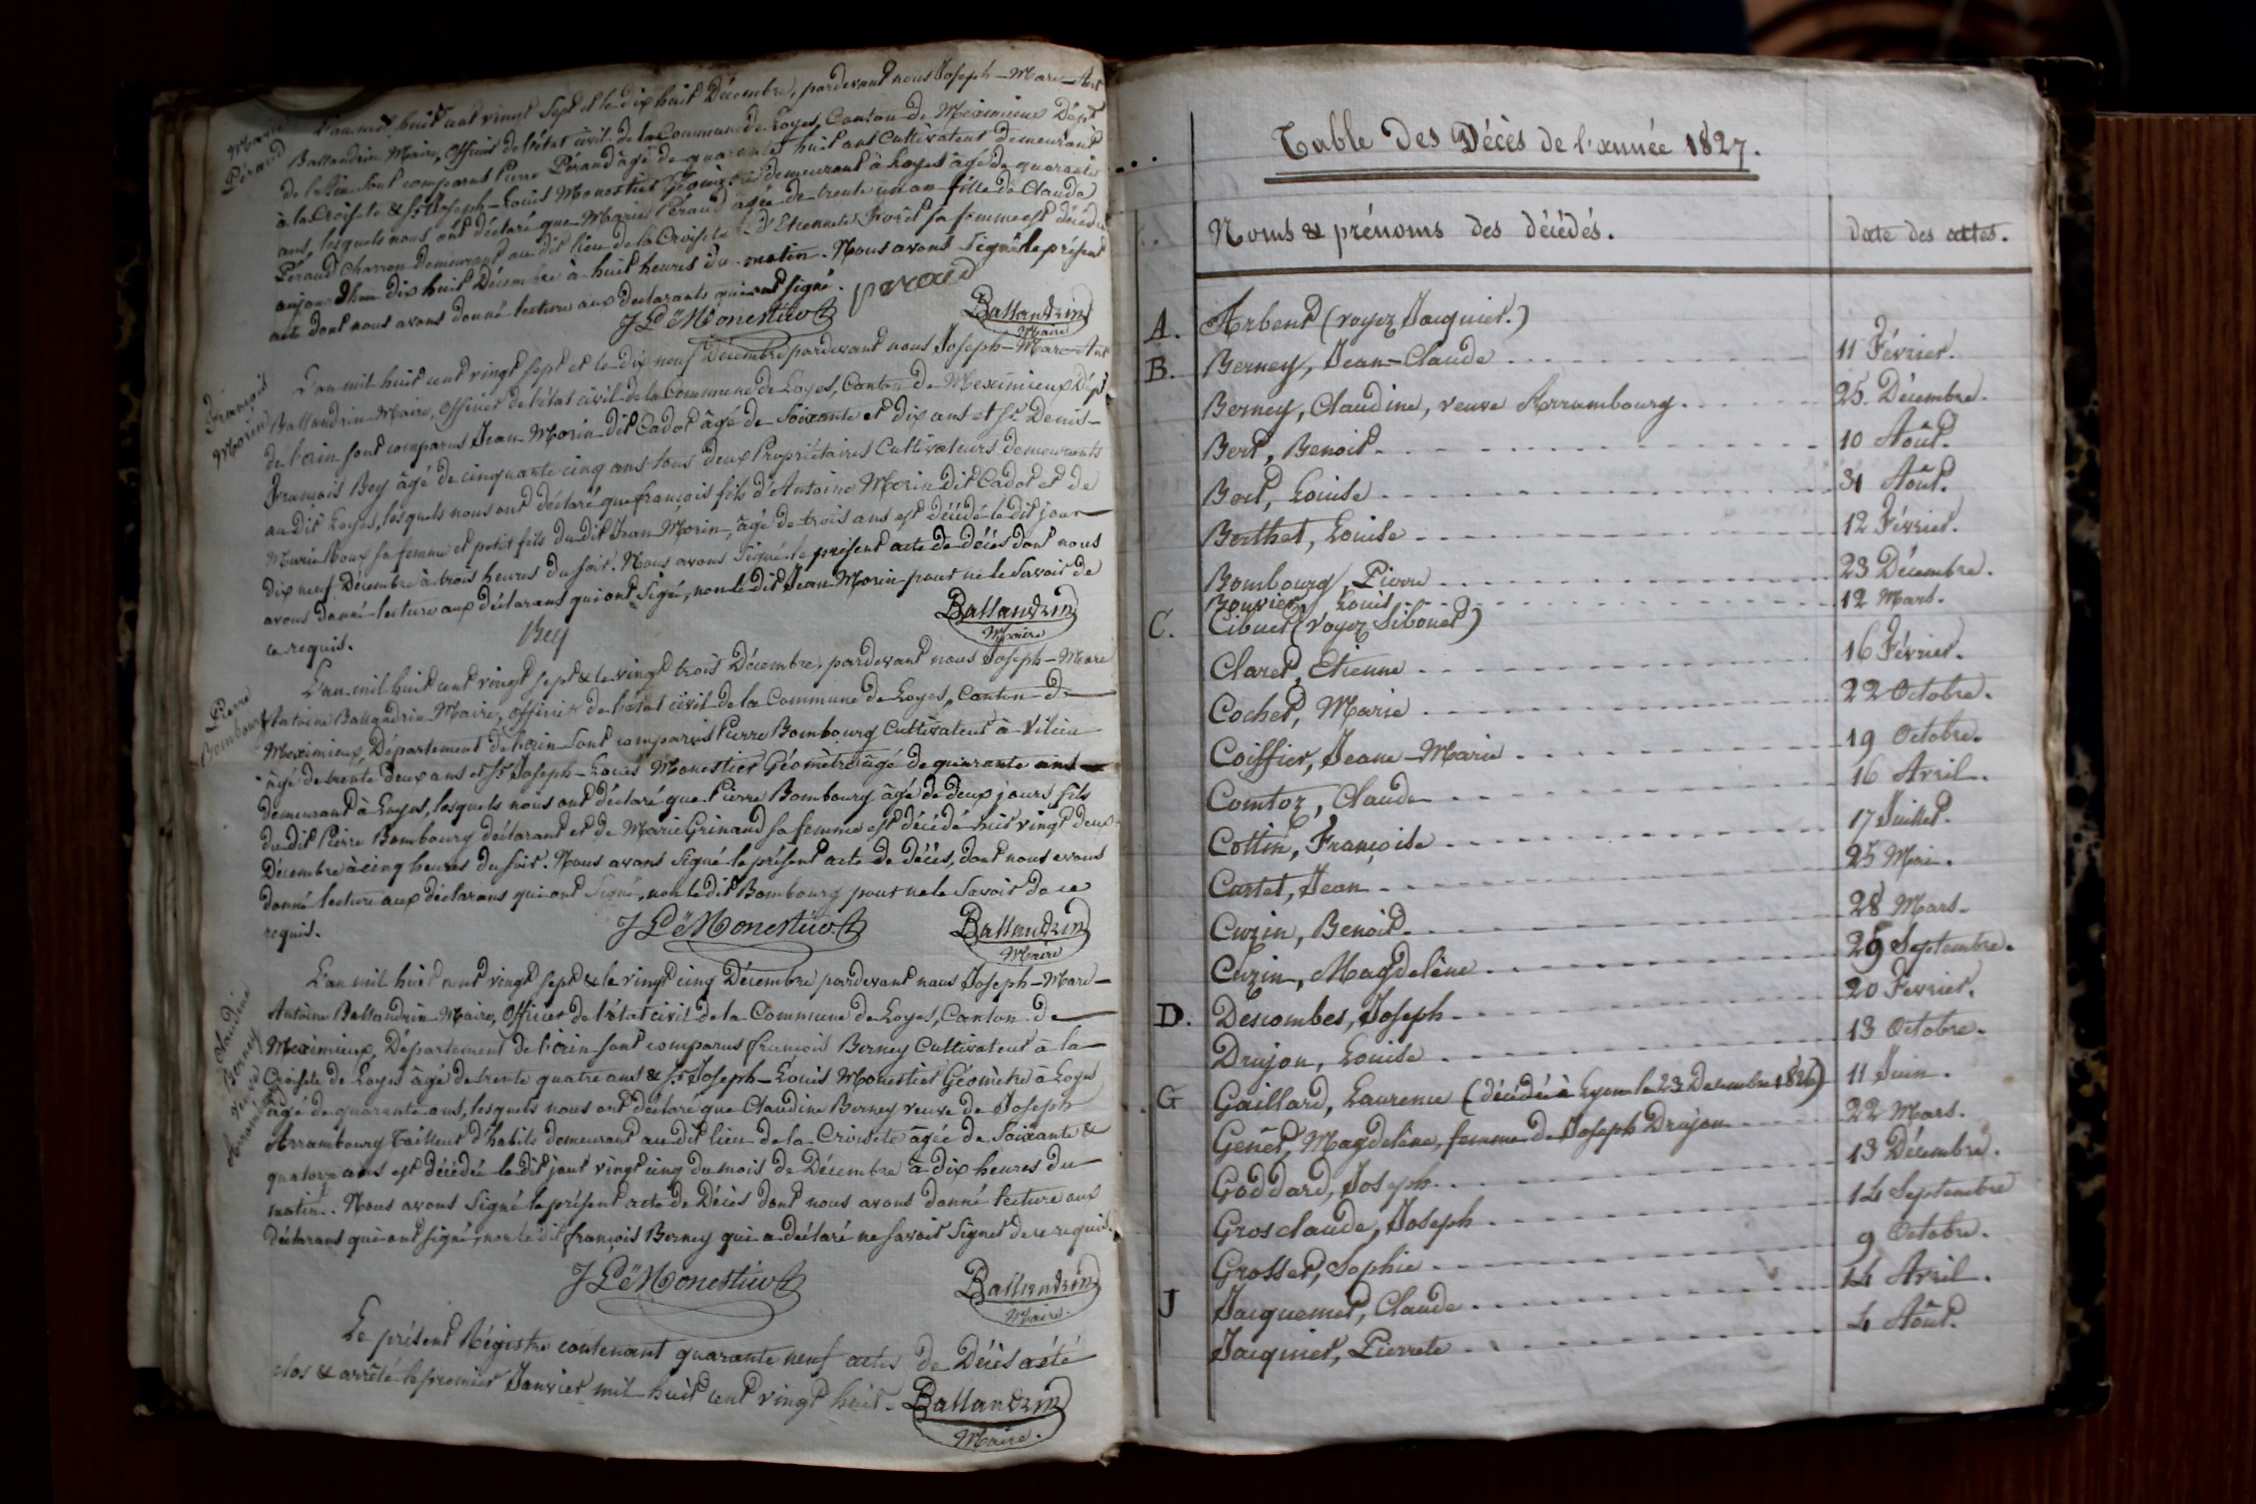 Marie
Péraud
L'an mil huit cent vingt Sept et le dix huit Décembre, pardevant nous Joseph-Marie-Ant
Ballandrin Maire, Officier de l'état civil de la Commune de Loyes, Canton de Meximieux Dépt
de l'Ain sont comparus Pierre Péraud âgé de quarante huit ans Cultivateur demeurant
à la Croisete & Sr. Joseph-Louis Monestier Géomètre demeurant à Loyes âgé de quarante
ans, lesquels nous ont déclaré que Marie Péraud âgée de trente un an fille de Claude
Péraud Charron demeurant au dit lieu de la Croisete & d'Etiennete sa femme est décédée
aujourd'hui dix huit Décembre à huit heures du matin. Nous avons Signé le présent
acte dont nous avons donné lecture aux déclarants qui ont signé. peraud
J Ls Monestier
Ballandrin
Maire
François
Morin
L'an mil huit cent vingt sept et le dix neuf Décembre pardevant nous Joseph-Marie-Ant
Ballandrin Maire, Officier de l'état civil de la Commune de Loyes, Canton de Meximieux Dépt
de l'ain sont comparus Jean Morin dit Cadot âgé de Soixante et dix ans et Sr. Denis-
François Bey âgé de cinquante cinq ans tous deux Propriétaires Cultivateurs demeurants
au dit Loyes, lesquels nous ont déclaré que françois fils d'Antoine Morin dit Cadot et de
Marie Roux sa femme et petit fils du dit Jean Morin, âgé de trois ans est décédé le dit jour
dix neuf Décembre à trois heures du soir. Nous avons Signé le présent acte de décès dont nous
avons donné lecture aux déclarans qui ont Signé, non le dit Jean Morin pour ne le Savoir de
ce requis.
Bey
Ballandrin
Maire
Pierre
Bombourg
L'an mil huit cent vingt sept & le vingt trois Décembre, pardevant nous Joseph-Marie
Antoine Ballandrin Maire, officier de l'état civil de la Commune de Loyes, Canton de
Meximieux, Département de l'ain sont comparus Pierre Bombourg Cultivateur à Vilieu
âgé de trente deux ans et Sr. Joseph-Louis Monestier Géomètre âgé de quarante ans
demeurant à Loyes, lesquels nous ont déclaré que Pierre Bombourg âgé de deux jours fils
du dit Pierre Bombourg déclarant et de Marie Grinand sa femme est décédé hier vingt deux
Décembre à cinq heures du soir. Nous avons Signé le présent acte de décès, dont nous avons
donné lecture aux déclarans qui ont Signé, non le dit Bombourg pour ne le Savoir de ce
requis.
J Ls Monestier
Ballandrin
Maire
Claudine
Berney
veuve
L'an mil huit cent vingt sept & le vingt cinq Décembre pardevant nous Joseph-Marie-
Antoine Ballandrin Maire, Officier de l'état civil de la Commune de Loyes, Canton de
Meximieux, Département de l'ain sont comparus françois Berney Cultivateur à la
Croisete de Loyes âgé de trente quatre ans & Sr. Joseph-Louis Monestier Géomètre à Loyes
âgé de quarante ans, lesquels nous ont déclaré que Claudine Berney veuve de Joseph
Arrambourg Tailleur d'habits demeurant au dit lieu de la Croisete âgée de Soixante &
quatorze ans est décédée le dit jour vingt cinq du mois de Décembre à dix heures du
matin. Nous avons Signé le présent acte de Décès dont nous avons donné lecture aux
déclarans qui ont signé, non le dit françois Berney qui a déclaré ne Savoir Signer de ce requis.
J Ls Monestier
Ballandrin
Maire.
Le présent Régistre contenant quarante neuf actes de Décès a été
clos & arrêté le premier Janvier mil huit cent vingt huit.
Ballandrin
Maire.
Table des Décès de l'année 1827.
Noms & prénoms des décédés. date des actes.
A. Arbent (voyez Jacquier.)
B. Berney, Jean-Claude 11 Février.
Berney, Claudine, veuve Arrambourg. 25. Décembre.
Bert, Benoit. 10 Août.
Bert, Louise 31 Août.
Berthet, Louise 12 Février.
Bombourg, Pierre 23 Décembre.
Bouvier, Louis 12 Mars.
C. Cibuet (voyez Sibouet)
Claret, Etienne 16 Février.
Cochet, Marie 22 Octobre.
Coiffier, Jeane-Marie 19 Octobre.
Comtoz, Claude 16 Avril.
Cottin, Françoise 17 Juillet.
Curtet, Jean 25 Mai.
Curzin, Benoit. 28 Mars.
Curzin, Magdelène 29 Septembre.
D. Descombes, Joseph 20 Fevrier.
Drujon, Louise 13 Octobre.
G Gaillard, Laurence (décédée à Lyon le 23 Décembre 1826) 11 Juin.
Genet, Magdelène, femme de Joseph Drujon 22 Mars.
Goddard, Joseph. 13 Décembre.
Grosclaude, Joseph 14 Septembre
Grosset, Sophie 9 Octobre.
J Jacquemet, Claude 14 Avril.
Jacquier, Pierrete 4 Août.